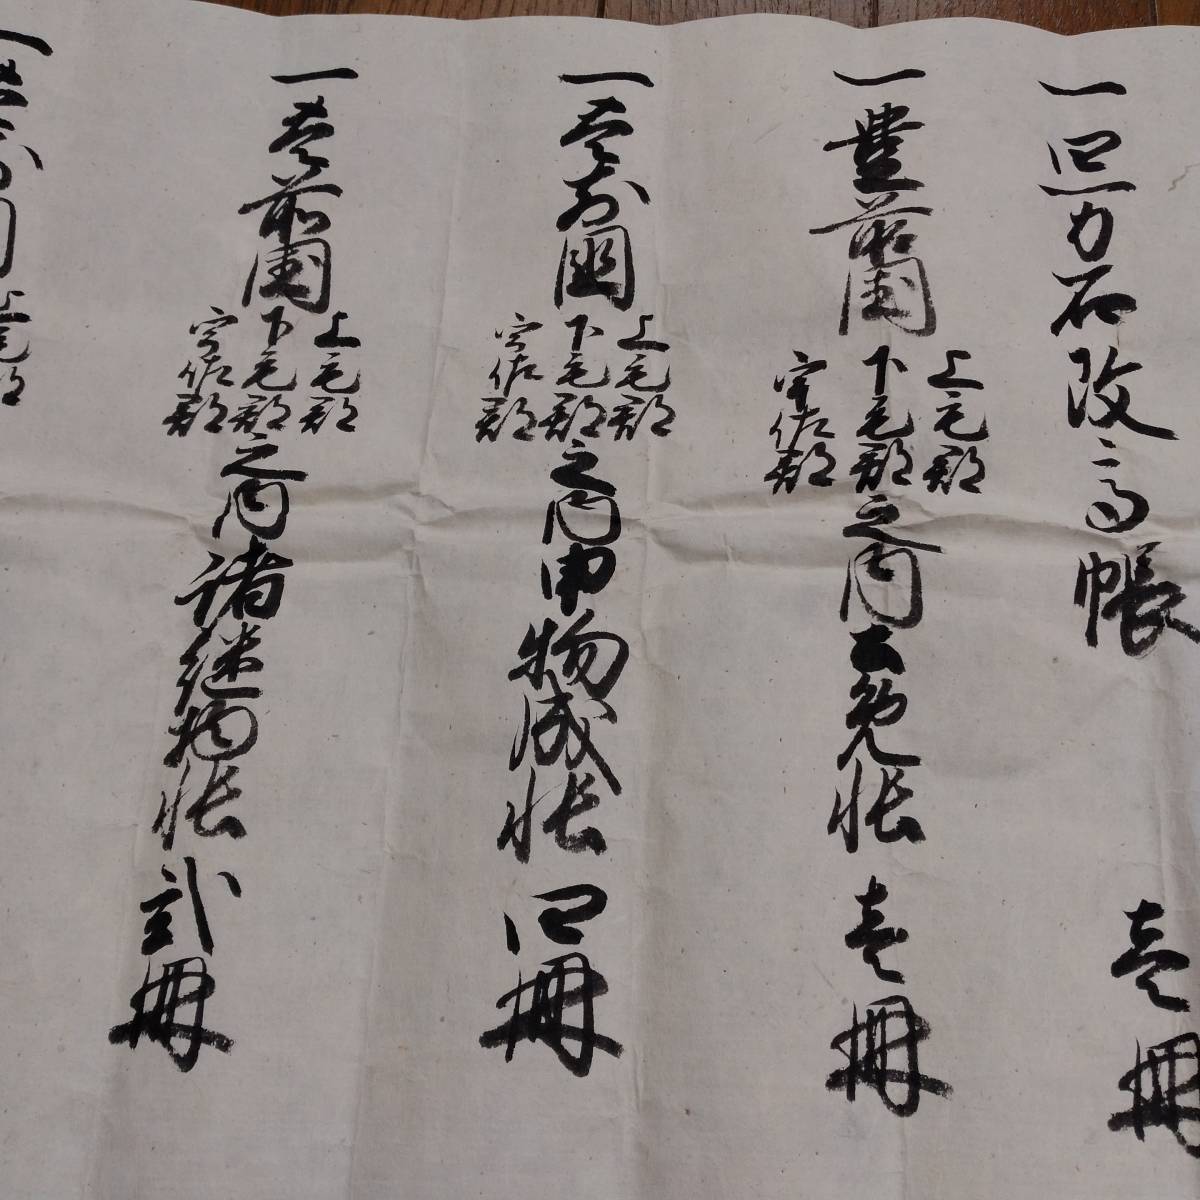 一 四万石改之高帳 壱冊
一 豊前国 上毛郡 下毛郡 宇佐郡 之内 免帳 壱冊
一 豊前国 上毛郡 下毛郡 宇佐郡 之内 物成帳 四冊
一 豊前国 上毛郡 下毛郡 宇佐郡 之内 諸 物帳 弐冊
一 豊前国 上毛郡